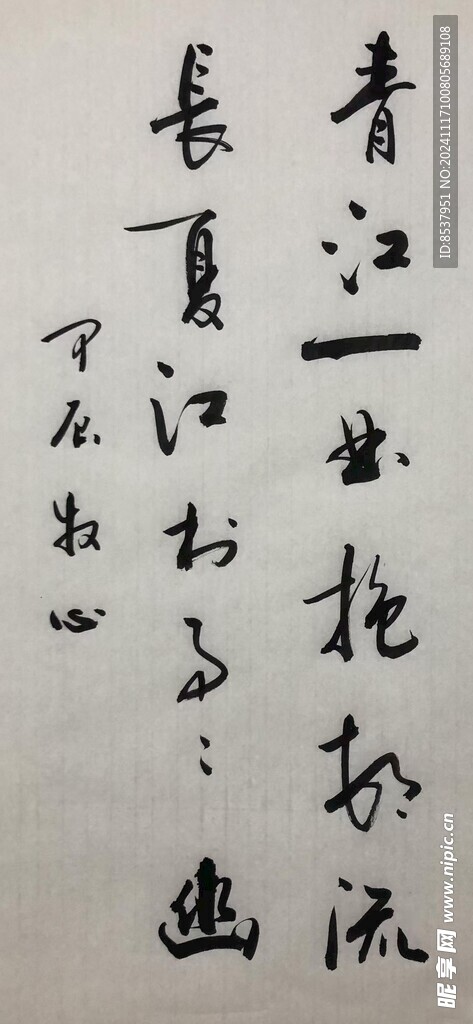 青江一曲抱邨流
長夏江村事〻幽
甲辰牧心
ID:8537951 NO:20241117100805689108
昵享网 www.nipic.cn